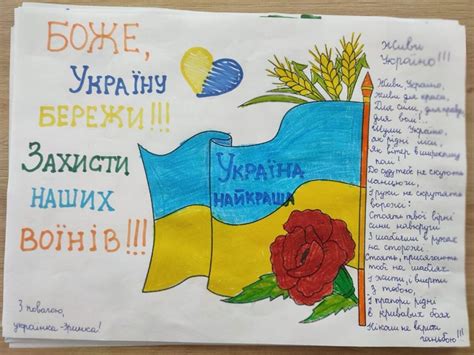 БОЖЕ,
УКРАЇНУ
БЕРЕЖИ!!!
ЗАХИСТИ
НАШИХ
ВОЇНІВ!!!
З повагою,
українка
УКРАЇНА
НАЙКРАЩА
Живи
Україно!!!
Живи, Україно,
живи для краси,
Для сили, для правди,
для волі!..
Шуми, Україно,
як рідні ліси,
Як вітер в широкому
полі.
До суду тебе не скують
ланцюги,
І руки не скрутять
ворожі:
Стоять твої вірні
сини навкруги
З шаблями в руках
на сторожі.
Стоять, присягають
тобі на шаблях
І жити, і вмерти
з тобою,
І прапори рідні
в кривавих боях
Ніколи не
ганьбою!!!